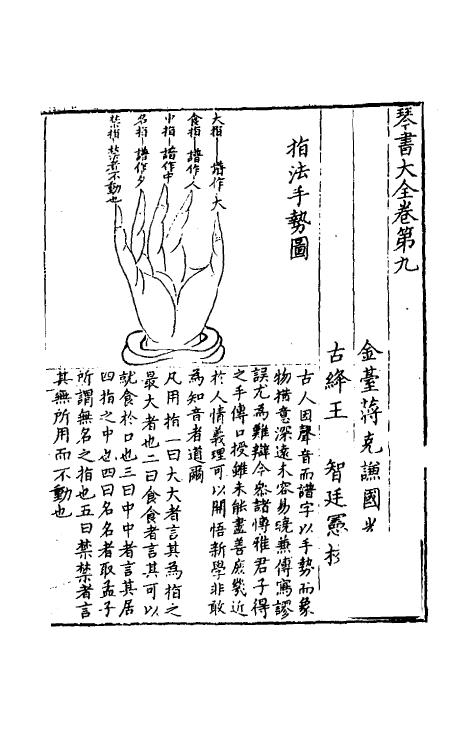 琴書大全卷第九
金臺蔣克謙國光
古絳王　智廷愚校
指法手勢圖
大指　譜作大
食指　譜作人
中指　譜作中
名指　譜作夕
禁指　禁者不動也
古人因聲音而譜字以手勢而象
物措意深遠未容易曉兼傳寫謬
誤尤為難辯今叅諸博雅君子得
之手傳口授雖未能盡善庶幾近
於人情義理可以開悟新學非敢
為知音者道爾
凡用指一曰大大者言其為指之
最大者也二曰食食者言其可以
就食於口也三曰中中者言其居
四指之中也四曰名名者取孟子
所謂無名之指也五曰禁禁者言
其無所用而不動也